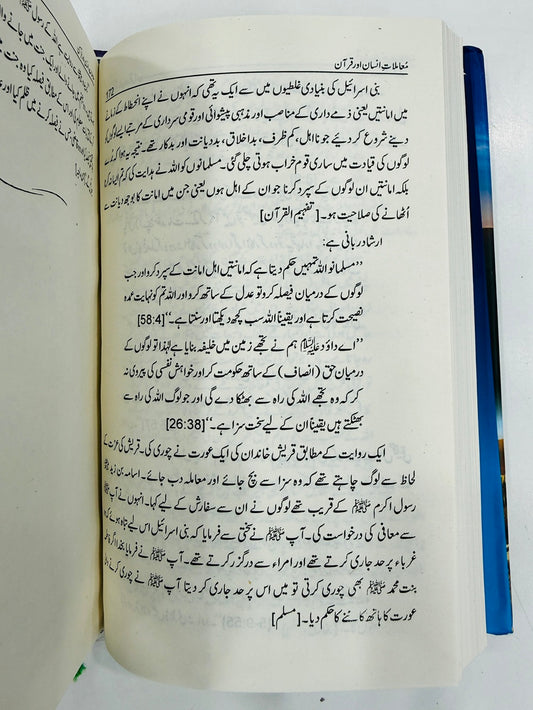 معاملاتِ انسان اور قرآن
172
بنی اسرائیل کی بنیادی غلطیوں میں سے ایک یہ تھی کہ انہوں نے اپنے انحطاط کے زمانے
میں امانتیں یعنی ذمے داری کے مناصب اور مذہبی پیشوائی اور قومی سرداری کے مرتبے ایسے لوگوں کو
دینے شروع کر دیئے جو نااہل، کم ظرف، بداخلاق، بددیانت اور بدکار تھے۔ نتیجہ یہ ہوا کہ برے
لوگوں کی قیادت میں ساری قوم خراب ہوتی چلی گئی۔ مسلمانوں کو اللہ نے ہدایت کی کہ تم ایسا نہ کرنا
بلکہ امانتیں ان لوگوں کے سپرد کرنا جو ان کے اہل ہوں یعنی جن میں امانت کا بوجھ دیانت سے
اُٹھانے کی صلاحیت ہو۔ [تفہیم القرآن]
ارشاد ربانی ہے:
’’مسلمانو اللہ تمہیں حکم دیتا ہے کہ امانتیں اہل امانت کے سپرد کرو اور جب
لوگوں کے درمیان فیصلہ کرو تو عدل کے ساتھ کرو اور اللہ تم کو نہایت عمدہ
نصیحت کرتا ہے اور یقیناً اللہ سب کچھ دیکھتا اور سنتا ہے۔‘‘ [58:4]
’’اے داؤد علیہ السلام ہم نے تجھے زمین میں خلیفہ بنایا ہے لہٰذا تو لوگوں کے
درمیان حق (انصاف) کے ساتھ حکومت کر اور خواہش نفسی کی پیروی نہ
کر کہ وہ تجھے اللہ کی راہ سے بھٹکا دے گی اور جو لوگ اللہ کی راہ سے
بھٹکتے ہیں یقیناً ان کے لیے سخت سزا ہے۔‘‘ [26:38]
ایک روایت کے مطابق قریش خاندان کی ایک عورت نے چوری کی۔ قریش کی عزت کے
لحاظ سے لوگ چاہتے تھے کہ وہ سزا سے بچ جائے اور معاملہ دب جائے۔ اسامہ بن زید
رسول اکرم ﷺ کے قریب تھے لوگوں نے ان سے سفارش کے لیے کہا۔ انہوں نے آپ ﷺ
سے معافی کی درخواست کی۔ آپ ﷺ نے سختی سے فرمایا کہ بنی اسرائیل اس لیے تباہ ہوئے کہ
غرباء پر حد جاری کرتے تھے اور امراء سے درگزر کرتے تھے۔ آپ ﷺ نے فرمایا بخدا اگر فاطمہ
بنت محمد ﷺ بھی چوری کرتی تو میں اس پر حد جاری کر دیتا آپ ﷺ نے چوری کرنے والی
عورت کا ہاتھ کاٹنے کا حکم دیا۔ [مسلم]